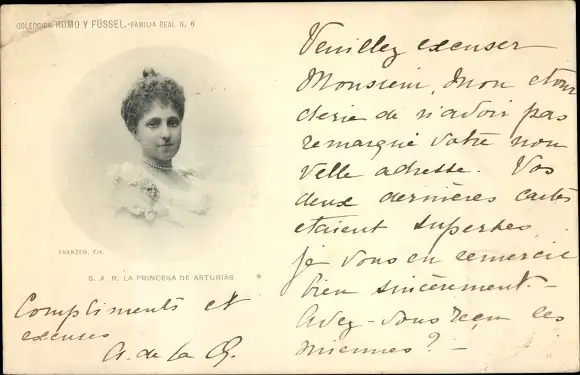 COLECCION ROMO Y FÜSSEL.-FAMILIA REAL N. 6
FRANZEN, Fot.
S. A. R. LA PRINCESA DE ASTURIAS
Veuillez excuser
Monsieur, mon étour
derie de n'avoir pas
remarqué votre nou
velle adresse. Vos
deux dernières cartes
étaient superbes,
je vous en remercie
bien sincèrement.-
Avez-vous reçu les
miennes? -
Compliments et
excuses
A. de la